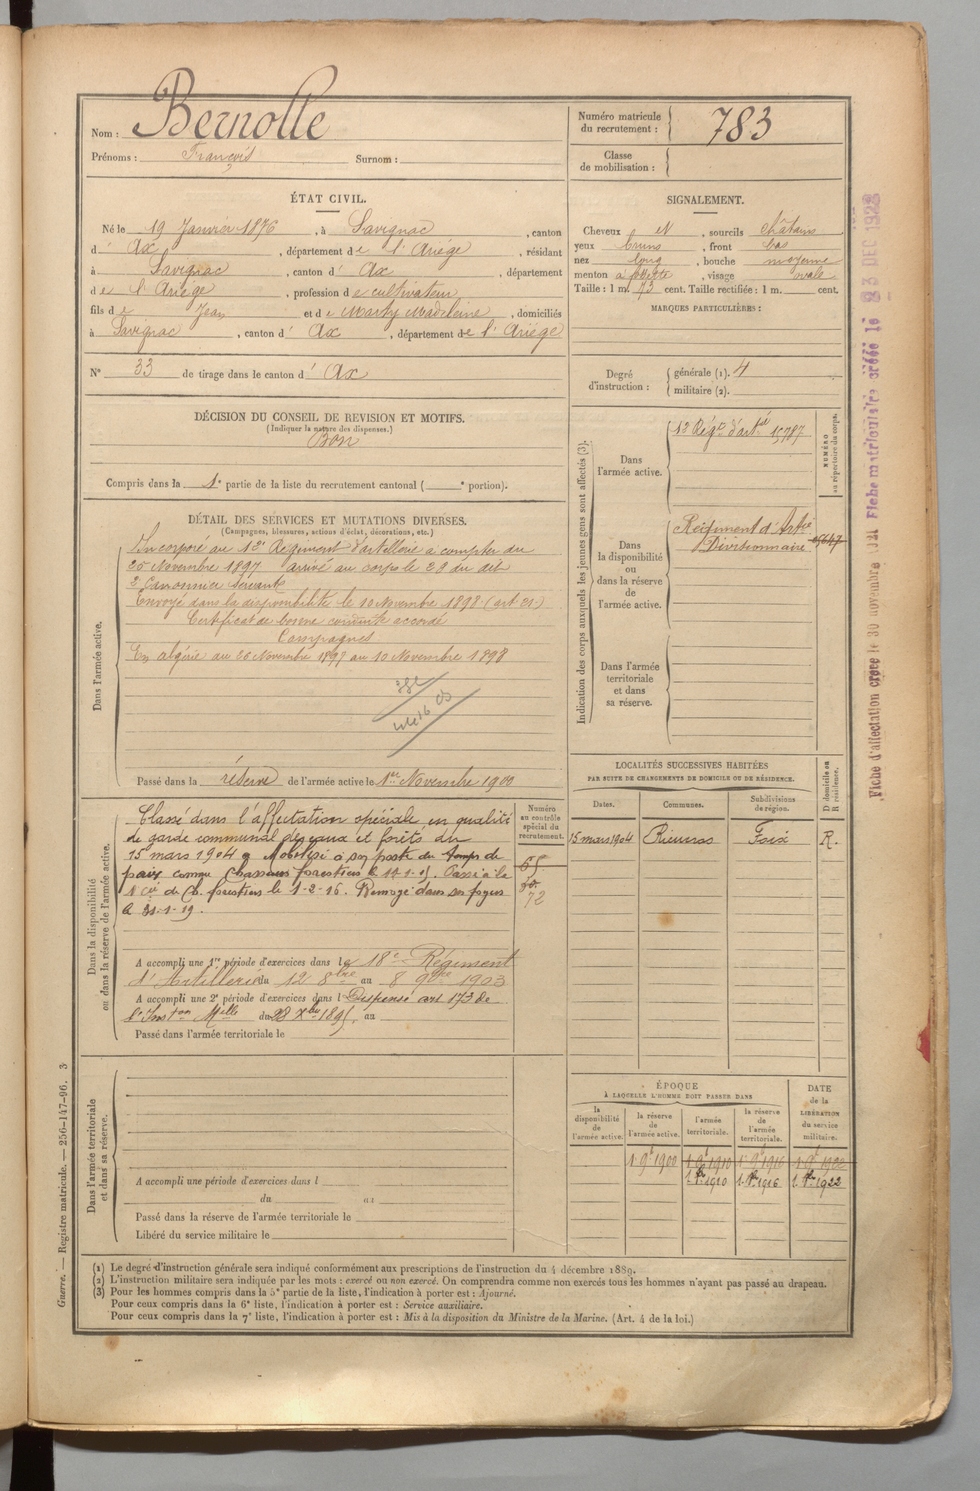 Nom : Bernolle
Prénoms : François Surnom :
Numéro matricule du recrutement : 783
Classe de mobilisation :
ÉTAT CIVIL.
Né le 19 Janvier 1876, à Savignac, canton
d' Ax, département de l'Ariège, résidant
à Savignac, canton d' Ax, département
de l'Ariège, profession de cultivateur
fils de Jean et de Marty Madeleine, domiciliés
à Savignac, canton d' Ax, département de l'Ariège
N° 33 de tirage dans le canton d' Ax
SIGNALEMENT.
Cheveux N, sourcils châtains
yeux bruns, front bas
nez long, bouche moyenne
menton à fossette, visage ovale
Taille : 1 m. 73 cent. Taille rectifiée : 1 m. cent.
MARQUES PARTICULIÈRES :
Degré d'instruction : générale (1). 4
militaire (2).
DÉCISION DU CONSEIL DE REVISION ET MOTIFS.
(Indiquer la nature des dispenses.)
Bon
Compris dans la 1e partie de la liste du recrutement cantonal ( e portion).
DÉTAIL DES SERVICES ET MUTATIONS DIVERSES.
(Campagnes, blessures, actions d'éclat, décorations, etc.)
Dans l'armée active.
Incorporé au 13e Régiment d'artillerie à compter du
25 Novembre 1897 arrivé au corps le 29 du dit
2e Canonnier servant
Envoyé dans la disponibilité le 10 Novembre 1898 (art 21.)
Certificat de bonne conduite accordé
Campagnes
En algérie du 26 Novembre 1897 au 10 Novembre 1898
Passé dans la réserve de l'armée active le 1er Novembre 1900
Indication des corps auxquels les jeunes gens sont affectés (3).
NUMÉRO au répertoire du corps.
Dans l'armée active.
13 Régt d'artie 15787
Dans la disponibilité ou dans la réserve de l'armée active.
Régiment d'Artie
Divisionnaire
Dans l'armée territoriale et dans sa réserve.
Dans la disponibilité ou dans la réserve de l'armée active.
Classé dans l'affectation spéciale en qualité
de garde communal des eaux et forêts du
15 mars 1904 Mobilisé à son poste du temps de
paix comme Chasseur forestier le Passé à la
Cie de Ch. forestiers le 1-2-16. Renvoyé dans ses foyers
le 31-1-19.
Numéro au contrôle spécial du recrutement.
65
72
A accompli une 1re période d'exercices dans le 18e Régiment
d'Artillerie du 12 8bre au 8 9bre 1903
A accompli une 2e période d'exercices dans l Dispensé art 173 de
l'Inston Melle du 28 Xbre 1895, au
Passé dans l'armée territoriale le
LOCALITÉS SUCCESSIVES HABITÉES
PAR SUITE DE CHANGEMENTS DE DOMICILE OU DE RÉSIDENCE.
Dates. Communes. Subdivisions de région. D domicile ou R résidence.
15 mars 1904 Rieucros Foix R.
Dans l'armée territoriale et dans sa réserve.
A accompli une période d'exercices dans l
du au
Passé dans la réserve de l'armée territoriale le
Libéré du service militaire le
ÉPOQUE
À LAQUELLE L'HOMME DOIT PASSER DANS
la disponibilité de l'armée active. la réserve de l'armée active. l'armée territoriale. la réserve de l'armée territoriale. DATE de la LIBÉRATION du service militaire.
1 9e 1900 1 9e 1910 1 9e 1916 1 9e 1922
1910 1916 1922
(1) Le degré d'instruction générale sera indiqué conformément aux prescriptions de l'instruction du 4 décembre 1889.
(2) L'instruction militaire sera indiquée par les mots : exercé ou non exercé. On comprendra comme non exercés tous les hommes n'ayant pas passé au drapeau.
(3) Pour les hommes compris dans la 5e partie de la liste, l'indication à porter est : Ajourné.
Pour ceux compris dans la 6e liste, l'indication à porter est : Service auxiliaire.
Pour ceux compris dans la 7e liste, l'indication à porter est : Mis à la disposition du Ministre de la Marine. (Art. 4 de la loi.)
Guerre. — Registre matricule. — 256-147-96. 3
Fiche d'affectation créée le 30 novembre 1921 Fiche matriculaire créée le 23 DEC 1923